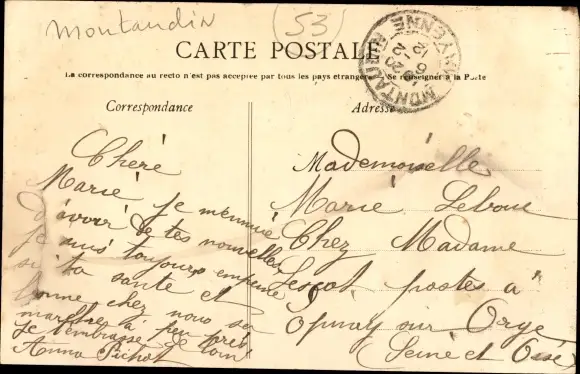 Montaudin
(53)
CARTE POSTALE
La correspondance au recto n'est pas acceptée par tous les pays étrangers. Se renseigner à la Poste
MONTAUDIN
MAYENNE
Correspondance
Adresse
Chéré
Marié je m'ennuie
d'avoir de tes nouvelles
je suis toujours
si ta santé et
bonne chez nous sa
à peu près
Je t'embrasse de loin
Anna Pichot
Mademoiselle
Marié Leboue
Chez Madame
Lescot, postes a
Epinay sur Orge
(Seine et Oise